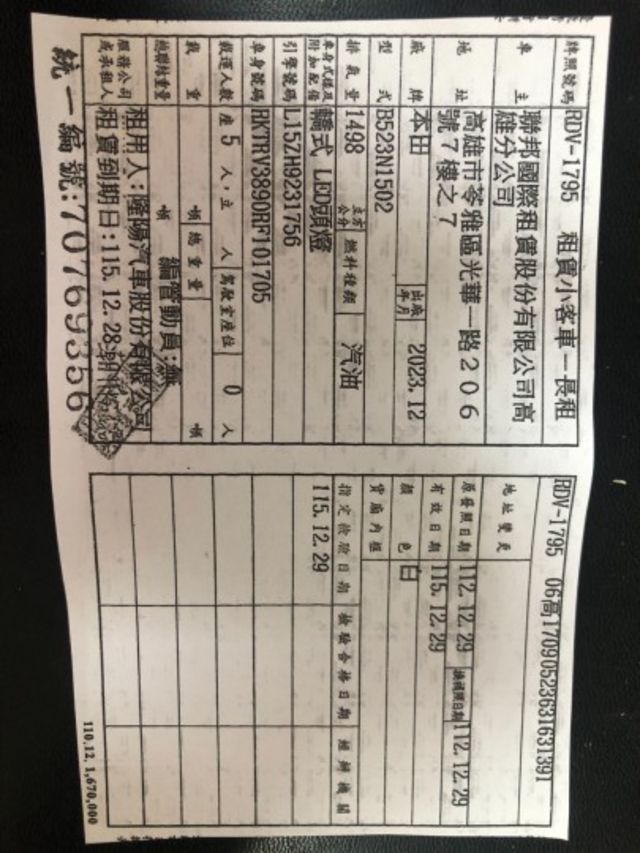 牌照號碼 RDV-1795 租賃小客車－長租
車主 聯邦國際租賃股份有限公司高
雄分公司
地址 高雄市苓雅區光華一路206
號7樓之7
廠牌 本田 出廠年月 2023.12
型式 B523N1502
排氣量 1498 立方公分 燃料種類 汽油
車身式樣及附加配備 轎式 LED頭燈
引擎號碼 L15ZH9231756
車身號碼 RKTRV3890RF101705
載運人數 座 5 人，立 人 駕駛室座位 0 人
載重 噸 總重量 噸
總聯結重量 噸 編管動員:無
服務公司或承租人 租用人:隆陽汽車股份有限公司
租賃到期日:115.12.28
統一編號:70769356
RDV-1795 06高17090523631631391
地址變更
原發照日期 112.12.29 換補照日期 112.12.29
有效日期 115.12.29
顏色 白
貨廂內框
指定檢驗日期 檢驗合格日期 經辦機關
115.12.29
110.12. 1,670,000